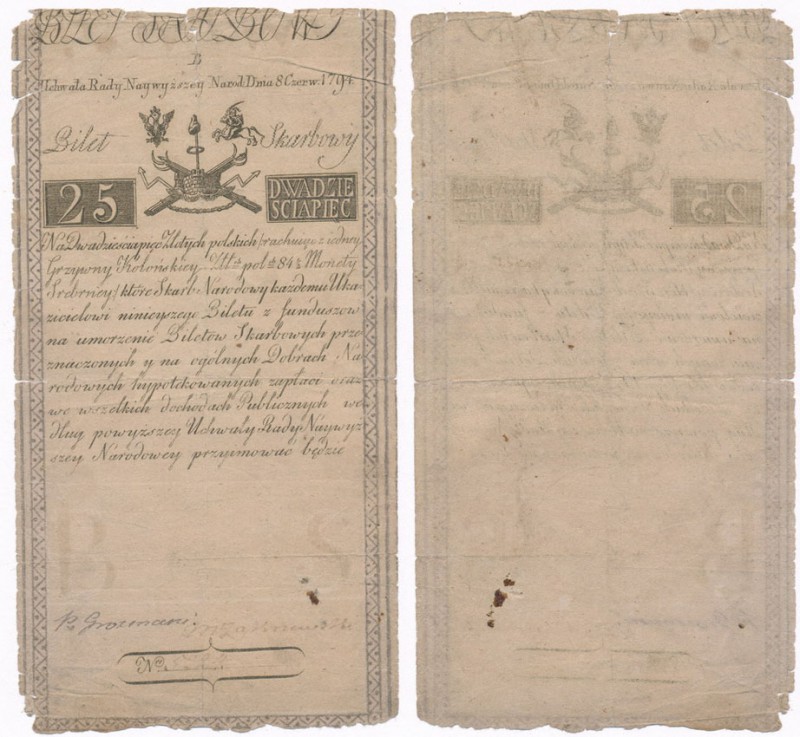 BILET SKARBOWY
B
Uchwała Rady Naywyższey Narod: Dnia 8 Czerw: 1794.
Bilet Skarbowy
25 DWADZIE
ŚCIAPIEĆ
Na Dwadzieściapięć Złotych polskich / rachuiąc z iedney
Grzywny Kolońskiey Złł: pol: 84½ Monety
Srebrney / które Skarb Narodowy każdemu Uka-
zicielowi ninieyszego Biletu z funduszow
na umorzenie Biletow Skarbowych prze-
znaczonych y na ogólnych Dobrach Na-
rodowych hypotekowanych zapłaci oraz
we wszelkich dochodach Publicznych we-
dług powyższey Uchwały Rady Naywyż-
szey Narodowey przyimować będzie
No